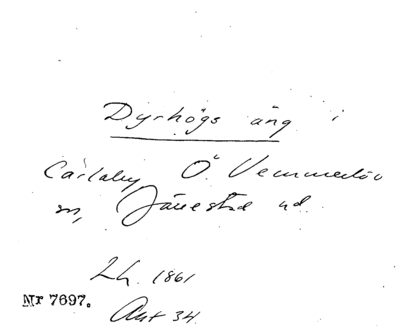 Dyrhögs äng i
Carlaby Ö Vemmerlöv
sn, Järrestad hd.
Lh. 1861
Nr 7697.
Akt 34.